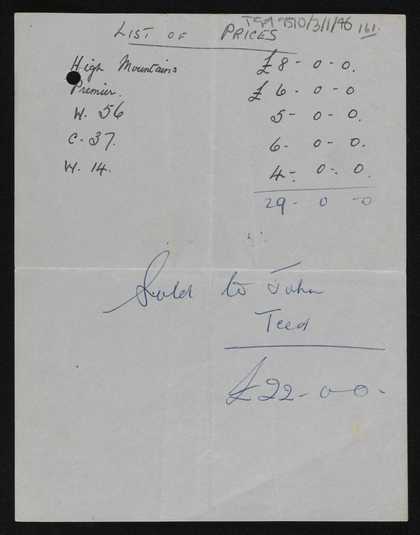 TGA 9510/3/1/96 161.
LIST OF PRICES
High Mountains £8-0-0.
Premier. £6-0-0
W. 56 5-0-0.
C. 37. 6-0-0.
W. 14. 4-0-0.
29-0-0
Sold to John
Teed
£22-0-0-